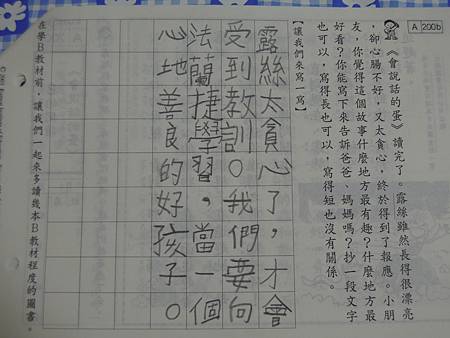 A 200b
《會說話的蛋》讀完了。露絲雖然長得很漂亮
，卻心腸不好，又太貪心，終於得到了報應。小朋
友，你覺得這個故事什麼地方最有趣？什麼地方最
好看？你能寫下來告訴爸爸、媽媽嗎？抄一段文字
也可以，寫得長也可以，寫得短也沒有關係。
【讓我們來寫一寫】
露絲太貪心了，才會
受到教訓。我們要向
法蘭捷學習，當一個
心地善良的好孩子。
在學B教材前，讓我們一起來多讀幾本B教材程度的圖書。